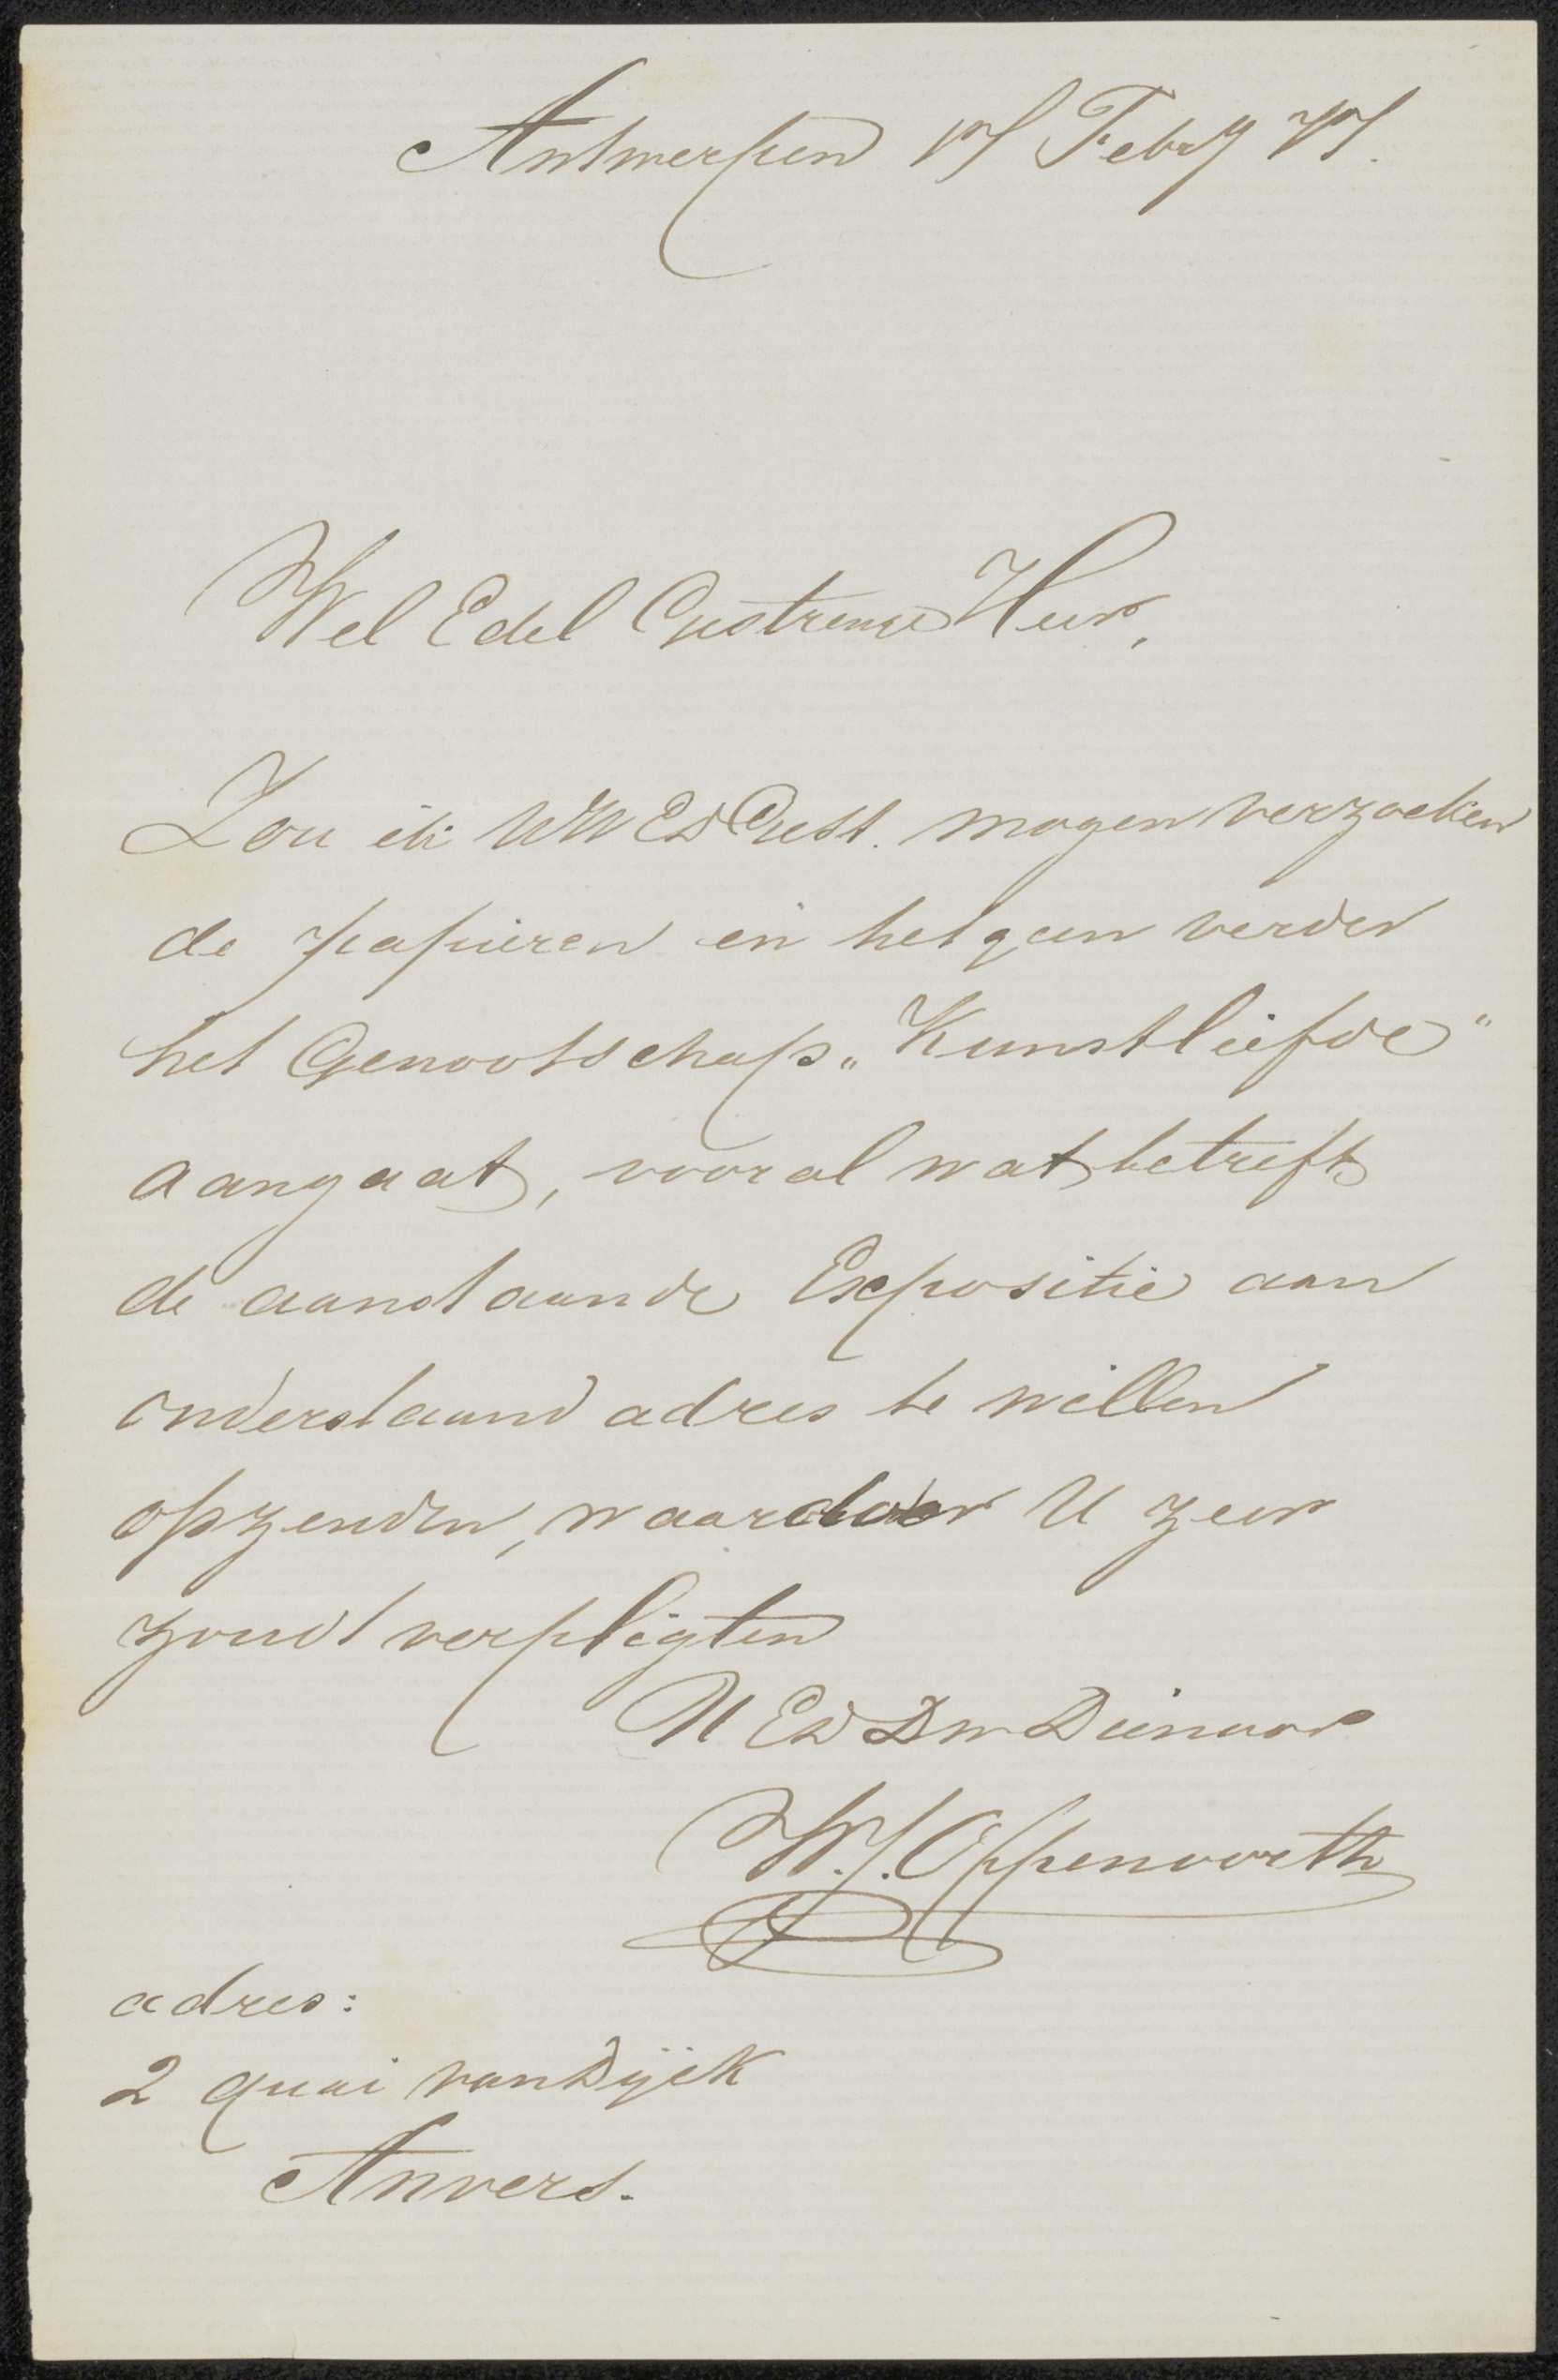 Antwerpen 17 Febrij 77.
Wel Edel Gestrenge Heer,
Zou ik UW Ed Gestr. mogen verzoeken
de papieren en hetgeen verder
het Genootschap „Kunstliefde"
aangaat, vooral wat betreft
de aanstaande Expositie aan
onderstaand adres te willen
opzenden, waardoor U zeer
zoudt verpligten
U Ed Dw Dienaar
W.J. Oppenoorth
adres:
2 quai van Dijck
Anvers.